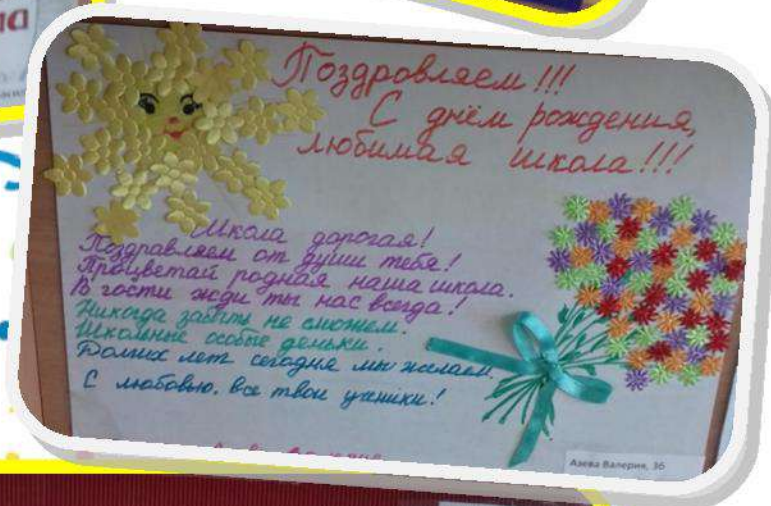 Поздровляем!!!
С днём рождения,
любимая школа!!!
Школа дорогая!
Поздравляем от души тебя!
Процветай родная наша школа.
В гости жди ты нас всегда!
Никогда забыть не сможем.
Школьные особые деньки.
Долгих лет сегодня мы желаем.
С любовью, все твои ученики!
Азева Валерия, 3б